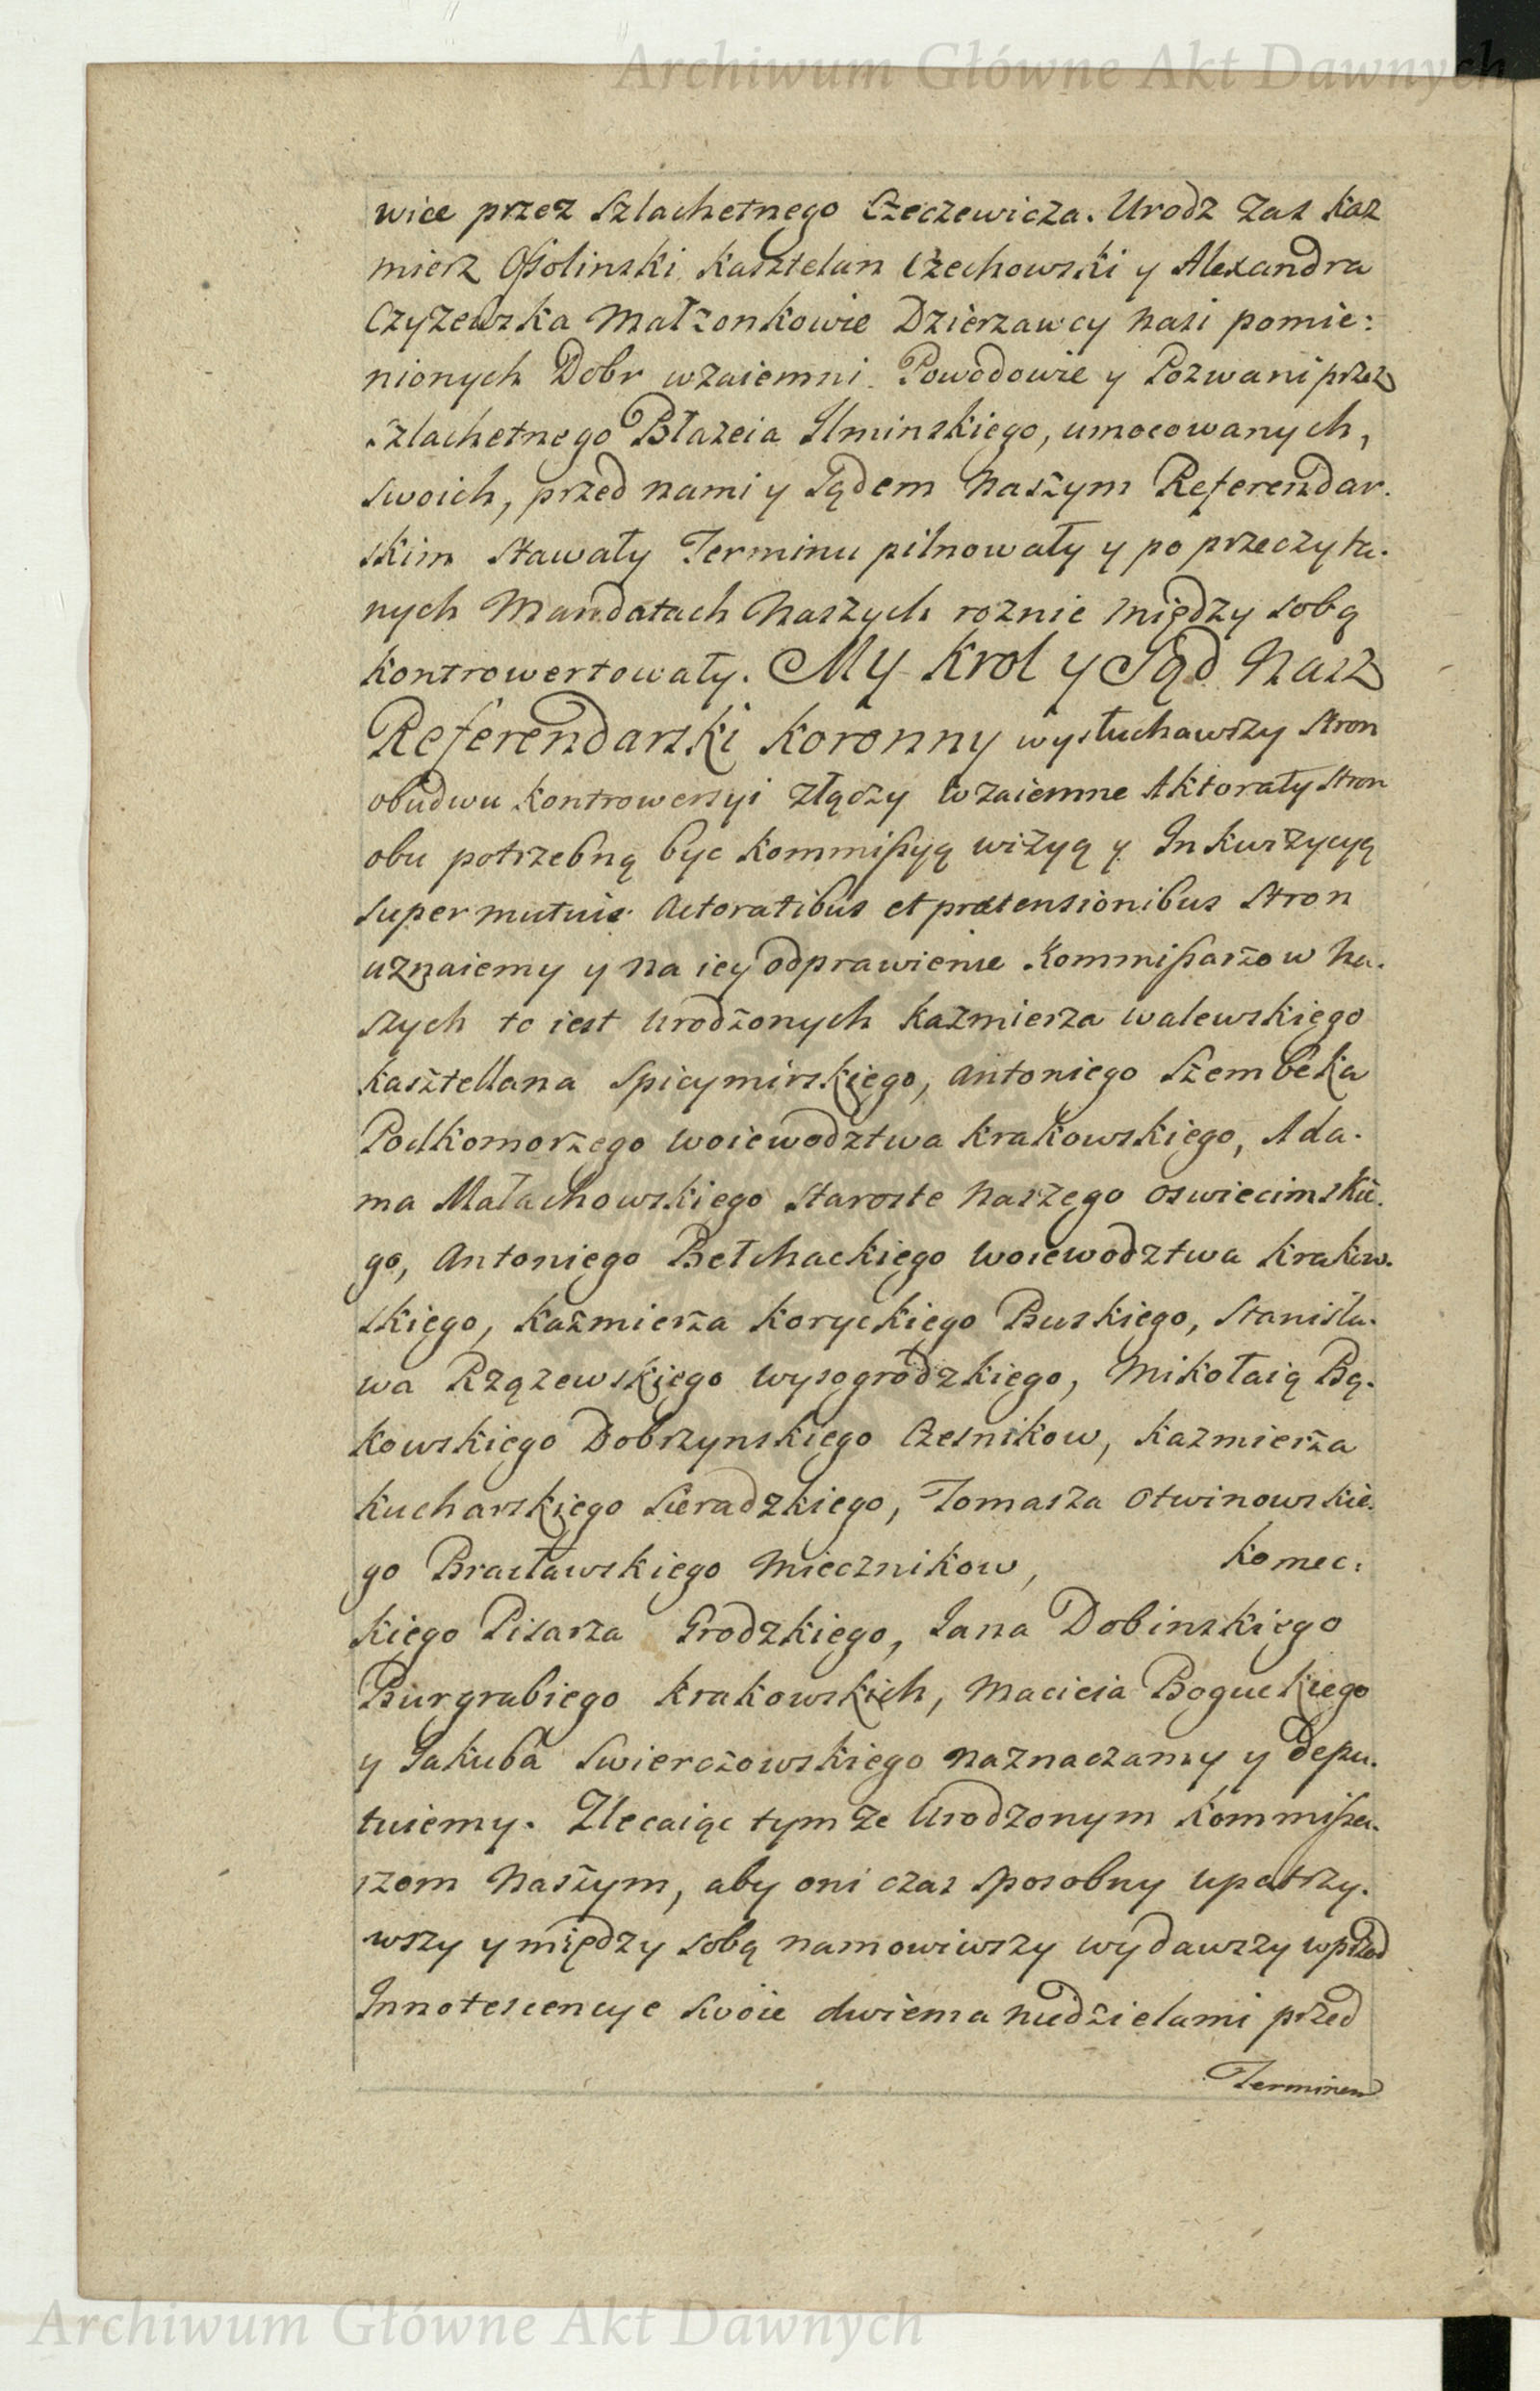 Archiwum Główne Akt Dawnych
wice przez Szlachetnego Czeczewicza. Urodz zas Kaz
mierz Ossolinski Kasztelan Czechowski y Alexandra
Czyzewska Małzonkowie Dzierzawcy nasi pomie:
nionych Dobr wzaiemni. Powodowie y Pozwani przez
Szlachetnego Błazeia Ilminskiego, umocowanych,
swoich, przed nami y Sądem naszym Referendar.
skim stawały Terminu pilnowały y po przeczyta.
nych Mandatach naszych roznie między sobą
kontrowertowały. My Krol y Sąd nasz
Referendarski Koronny wysłuchawszy stron
obudwu kontrowersyi złączy wzaiemne Aktoraty stron
obu potrzebną byc kommissyą wizyą y Inkwizycyą
super mutuis Actoratibus et prætensionibus stron
uznaiemy y na iey odprawienie Kommissarzow na.
szych to iest Urodzonych Kazmierza Walewskiego
Kasztellana Spicymirskiego, Antoniego Szembeka
Podkomorzego Woiewodztwa Krakowskiego, Ada.
ma Małachowskiego Staroste naszego Oswiecimskie.
go, Antoniego Bełchackiego Woiewodztwa Krakow.
skiego, Kazmierza Koryckiego Buskiego, Stanisła.
wa Rząźewskiego Wysogrodzkiego, Mikołaią Bą.
kowskiego Dobrzynskiego Czesnikow, Kazmierza
Kucharskiego Sieradzkiego, Tomasza Otwinowskie.
go Bracławskiego Miecznikow, Komec:
kiego Pisarza Grodzkiego, Jana Dobinskiego
Burgrabiego Krakowskich, Macieia Boguckiego
y Jakuba Swierczowskiego naznaczamy y depu.
tuiemy. Zlecaiąc tym ze Urodzonym Kommissa.
rzom naszym, aby oni czas sposobny upatrzy.
wszy y między sobą namowiwszy wydawszy wprzod
Innotescencye swoie dwiema niedzielami przed
Terminem
Archiwum Główne Akt Dawnych